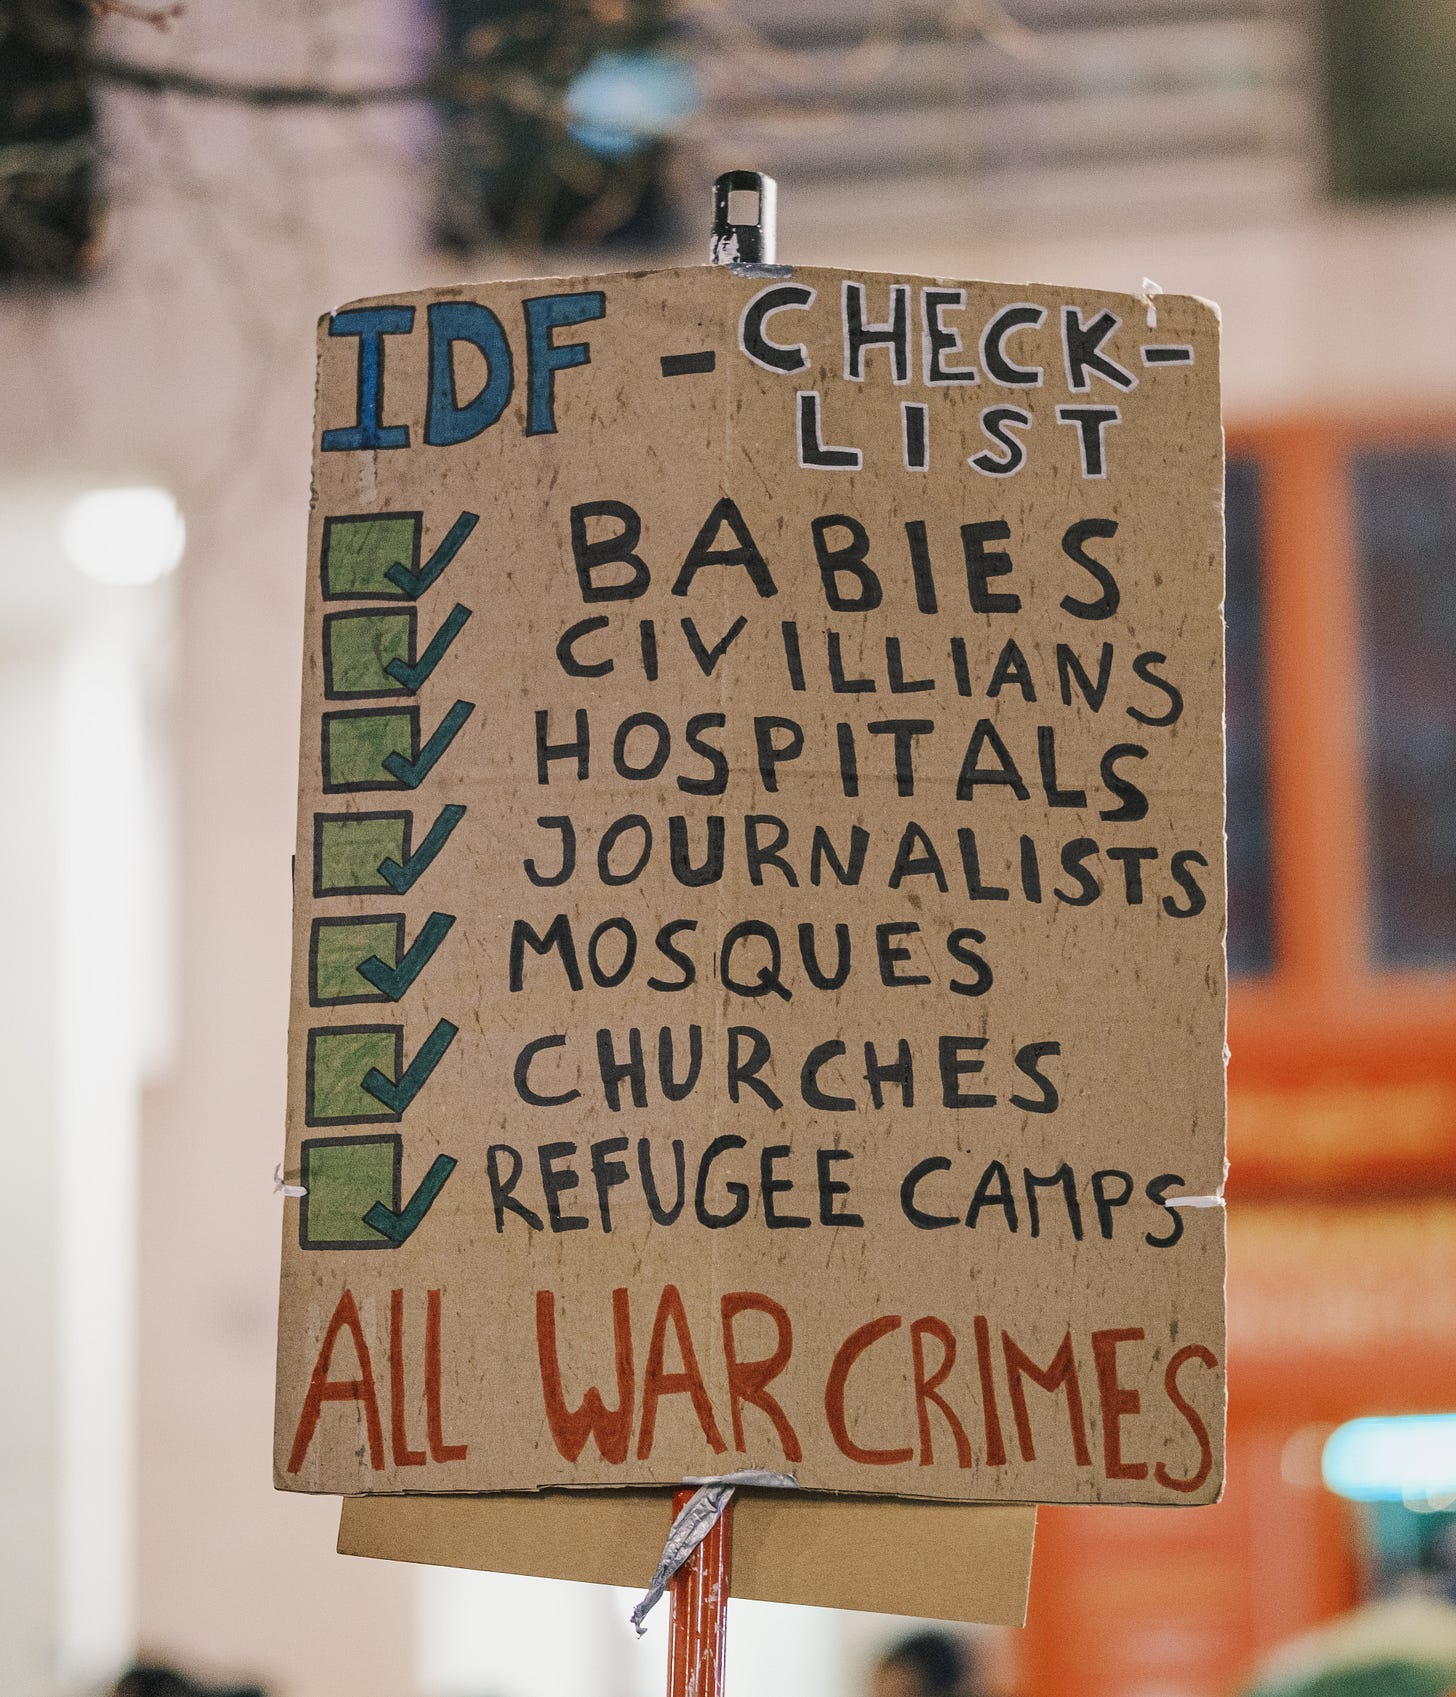 IDF - CHECK-
LIST
BABIES
CIVILLIANS
HOSPITALS
JOURNALISTS
MOSQUES
CHURCHES
REFUGEE CAMPS
ALL WAR CRIMES